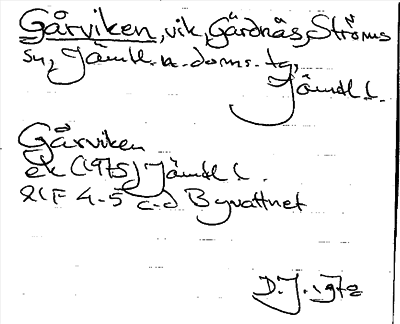 Gårviken, vik, Gärdnäs, Ströms
sn, Jämtl. n. doms. tg,
Jämtl. l.
Gårviken
ek (1975) Jämtl l.
21F 4-5 c-d Bynattnet
D. J. 1978